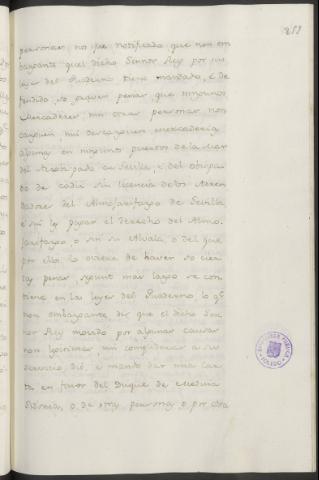 personas, nos fue notificado que non em
bargante quel dicho Sennor Rey por sus
leyes del Quaderno tiene mandado, e de
fendido so graves penas que ningunos
Mercaderes, nin otras personas non
carguen nin descarguen mercaderia
alguna en ningunos puertos de la mar
del Arzobispado de Sevilla, e del obispa
do de Cadiz sin licencia de los Arren
dadores del Almojarifazgo de Sevilla
e sin le pagar el derecho del Almo
jarifazgo, o sin su Alvala, o del que
por ello lo oviere de haver so cier
tas penas, segunt mas largo se con
tiene en las leyes del Quaderno, lo qual
non embargante diz que el dicho Sen
nor Rey movido por algunas causas
non legitimas, nin complideras a su
servicio, dió, e mandó dar una Car
ta en favor del Duque de Medina
Sidonia, o de otras personas, o por otra